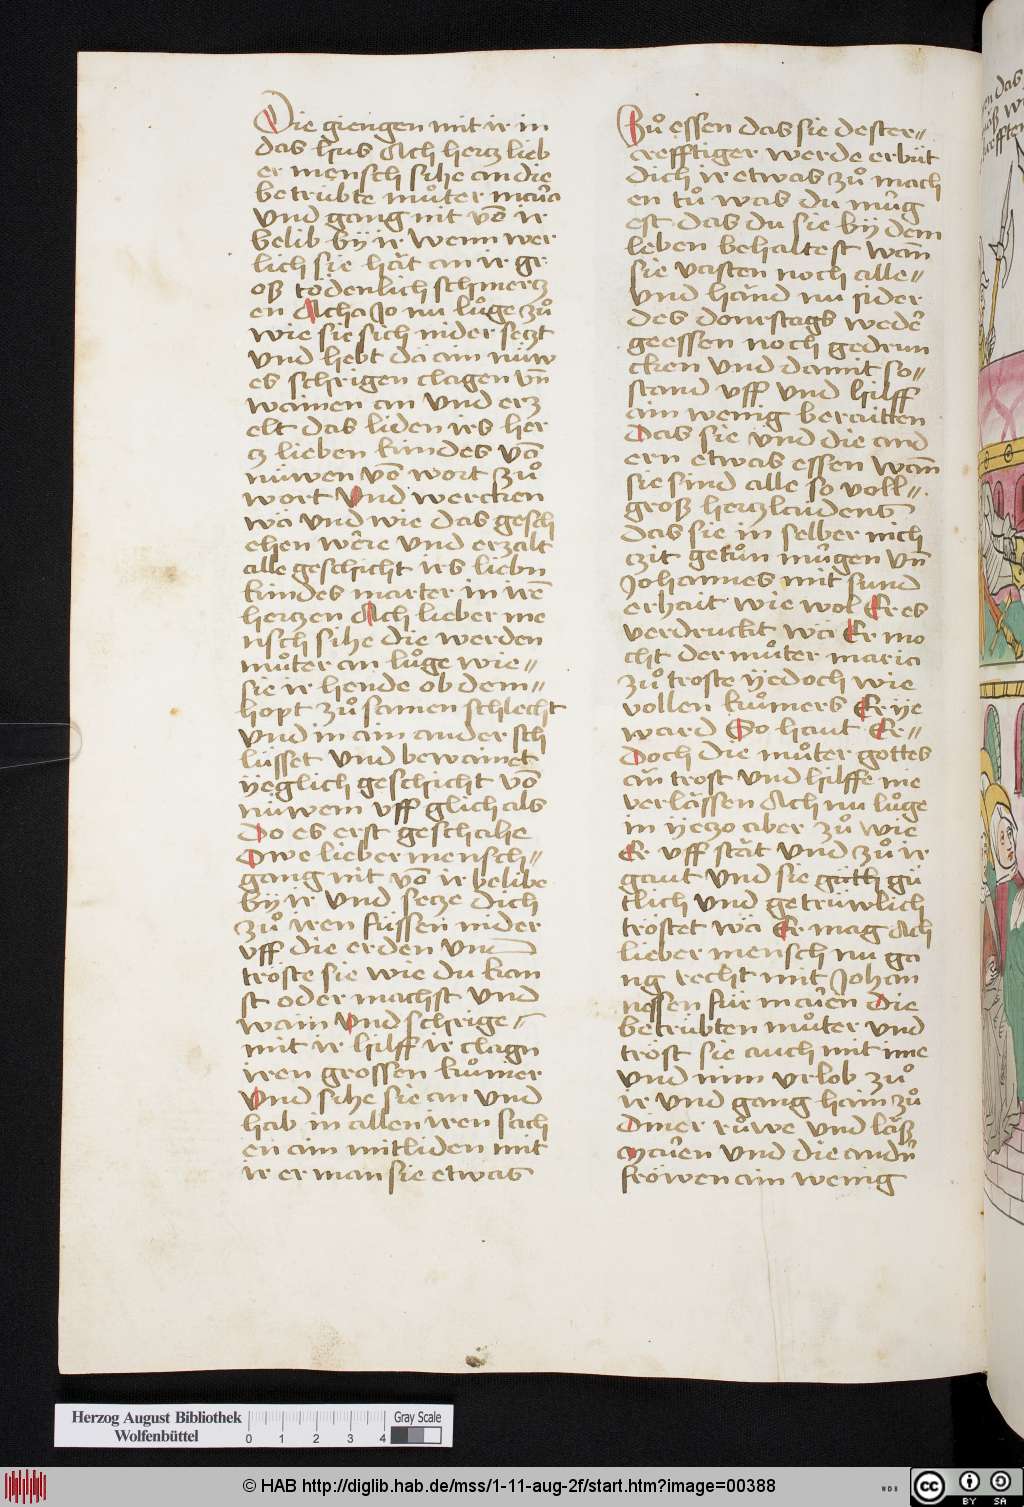 Die giengen mit ir in
das hus Ach hertz lieb
er mensch sihe an die
betrübte můter maria
vnd gang nit võ ir
belib bÿ ir wenn wer
lich sie hät an ir gr
osz tödenlich schmertz
en Acha Jo nu lůge zů
wie sie sich nider setzt
vnd hebt da ain nüw
es schrigen clagen vñ
wainen an vnd erz
elt das liden irs her
cz lieben kindes võ
nüwen võ wort zů
wort vnd wercken
wa vnd wie das gesch
ehen were vnd erzalt
alle geschicht irs liebn
kindes marter in irē
hertzen Ach lieber me
nsch sihe die werden
můter an lůge wie=
sie ir hende ob dem=
hopt zů samen schlecht
vnd in ain ander sch
lüsset vnd bewainet
ÿeglich geschicht võ
nüwem vff glich als
Do es erst geschahe
Owe lieber mensch=
gang nit võ ir belibe
bÿ ir vnd setze dich
zů iren füssen nider
vff die erden vnd
tröste sie wie du kan
st oder machst vnd
wain vnd schrige=
mit ir hilff ir clagn
iren grossen kumer
vnd sihe sie an vnd
hab in allen iren sach
en ain mitliden mit
ir erman sie etwas
Zů essen das sie dester=
crefftiger werde erbüt
dich ir etwas zů mach
en tů was du müg
est das du sie bÿ dem
leben behaltest wañ
sie vasten noch alle=
vnd händ nu sider
des donrstags weder
geessen noch gedrun
cken vnd damit so=
stand vff vnd hilff
ain wenig beraitten
Das sie vnd die and
ern etwas essen wañ
sie sind alle so voll=
grosz hertzlaidens
das sie in selber nich
czit getůn mügen vñ
Johannes mit sund
erhait wie wol Er es
verdruckt wa Er mo
cht der můter maria
zů troste ÿedoch wie
vollen kumers Er ÿe
ward So haut Er=
Doch die můter gottes
än trost vnd hilffe nie
verlässen Ach nu lůge
in ÿetzo aber zů wie
Er vff stät vnd zů ir
gaut vnd sie gütli gü
tlich vnd getrüwlich
tröstet wa Er mag Ach
lieber mensch nu ga
ng recht mit Johan
nessen für marien die
betrübten můter vnd
tröst sie auch mit ime
vnd nim vrlob zů
ir vnd gang haim zů
Diner růwe vnd läsz
Marien vnd die andn
fröwen ain wenig
Herzog August Bibliothek
Wolfenbüttel
0 1 2 3 4
Gray Scale
© HAB http://diglib.hab.de/mss/1-11-aug-2f/start.htm?image=00388
WDB
cc BY SA